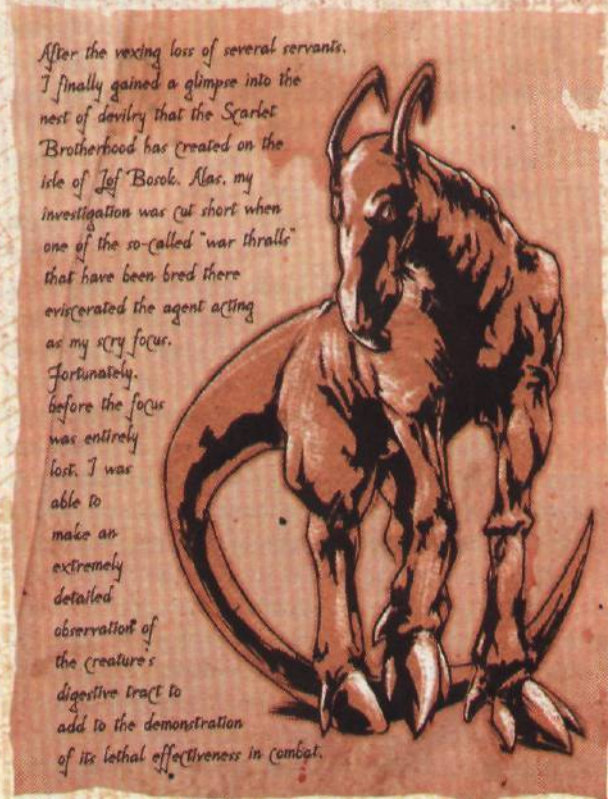 After the vexing loss of several servants,
I finally gained a glimpse into the
nest of devilry that the Scarlet
Brotherhood has created on the
isle of Lof Bosok. Alas, my
investigation was cut short when
one of the so-called "war thralls"
that have been bred there
eviscerated the agent acting
as my scry focus.
Fortunately,
before the focus
was entirely
lost, I was
able to
make an
extremely
detailed
observation of
the creature's
digestive tract to
add to the demonstration
of its lethal effectiveness in combat.